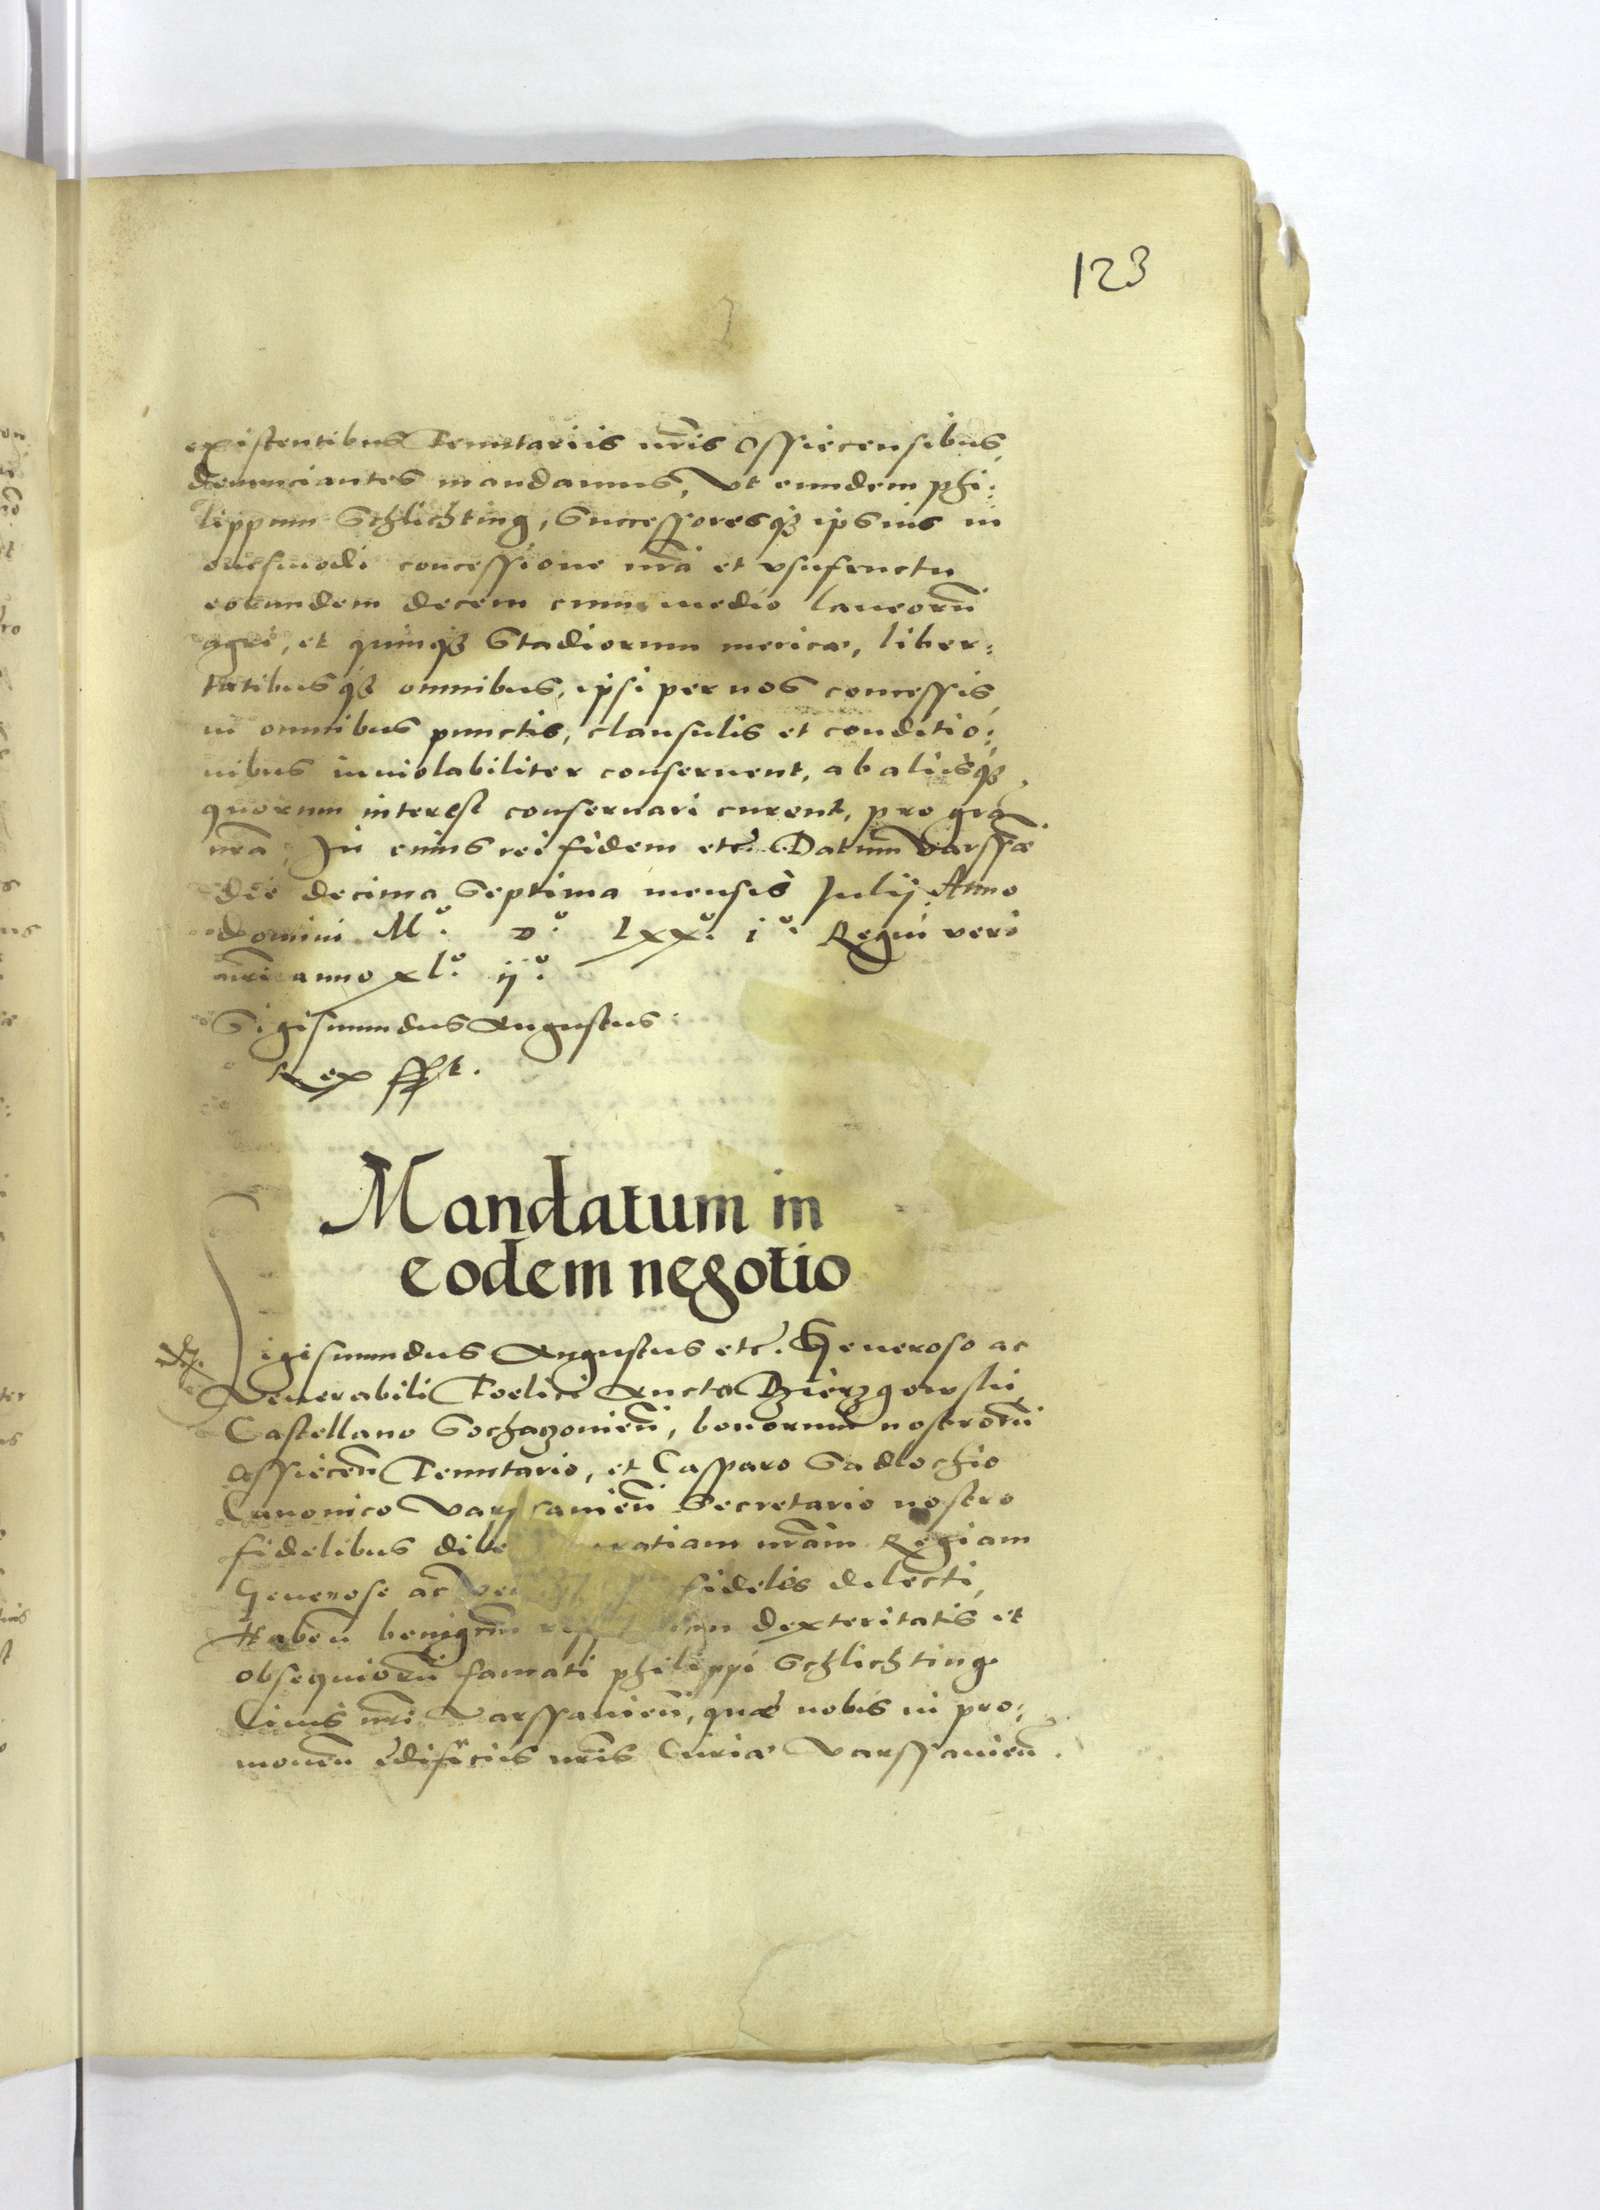 123
existentibus Tenutariis nr̃is Ossiecensibus,
denunciantes mandamus, Vt eundem phi:
lippum Schlichting, Successoresq3 ipsius in
eiusmodi concessione nr̃a et vsufructu
eorundem decem cum medio laneorũ
agri, et quinq3 Stadiorum mericæ, liber:
tatibusq3 omnibus, ipsi per nos concessis,
in omnibus punctis, clausulis et conditio:
nibus inuiolabiliter conseruent, ab aliisq3
quorum interest conseruari curent, pro grã
nr̃a. In cuius rei fidem etc̃. Datum Varssæ
die decima Septima mensis Julij Anno
domini Mº. Dº. Lxxº. iº. Regni vero
nr̃i anno xlº. ijº.
Sigismundus Augustus
Rex sst.
Mandatum in
eodem negotio
Sigismundus Augustus etc̃. Generoso ac
Venerabili Foelici Aucto Dzierzgowski
Castellano Sochazouień, bonorum nostrorũ
Ossiecen̄ Tenutario, et Casparo Sadlochio
Canonico Varssauień Secretario nostro
fidelibus dilec gratiam nr̃am Regiam
Generose ac fidelis dilecti,
Haben̄ benignm̃ dexteritatis et
obsequiorũ famati philippi Schlichting
Ciuis nr̃i Varssauień, quæ nobis in pro:
mouen̄ ędificiis nr̃is Curiæ Varssauień.